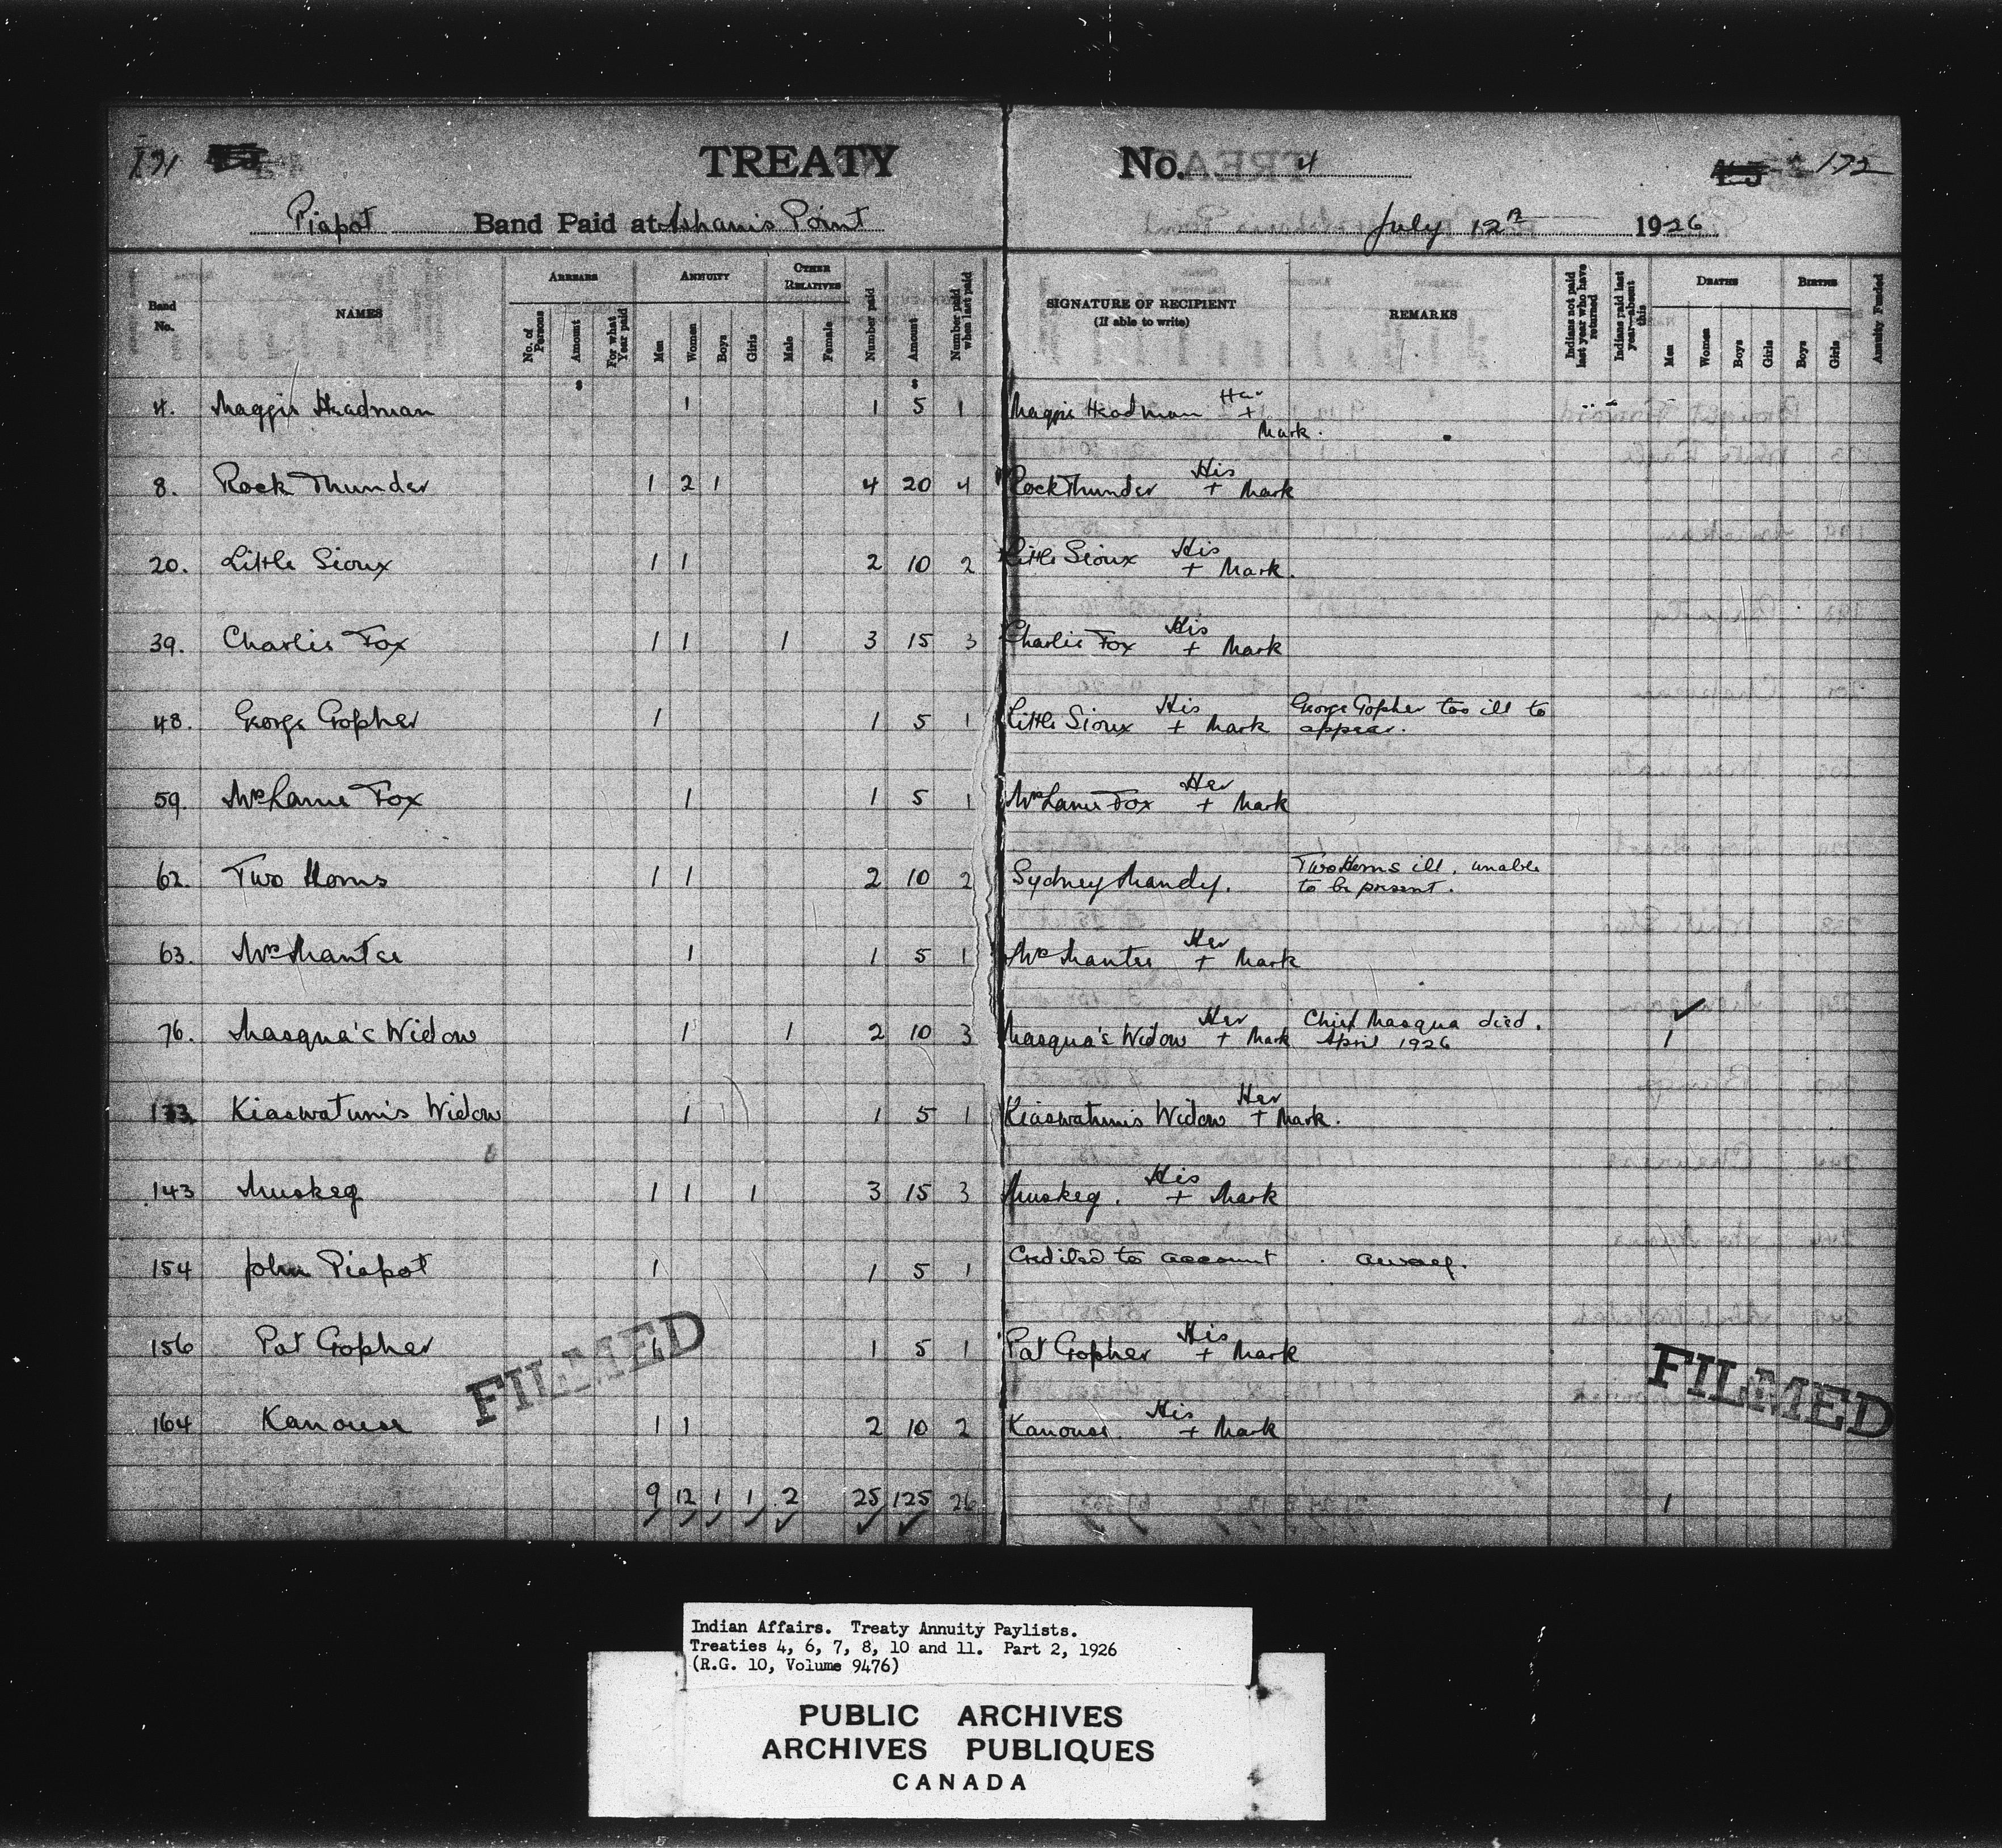 171 TREATY No. 4 172
Piapot Band Paid at Point July 12th 1926
Band No. NAMES ARREARS No. of Persons Amount For what Year paid ANNUITY Men Women Boys Girls OTHER RELATIVES Male Female Number paid Amount Number paid when last paid SIGNATURE OF RECIPIENT (If able to write) REMARKS Indians not paid last year who have returned Indians paid last year—absent this DEATHS Men Women Boys Girls BIRTHS Boys Girls Annuity Funded
4. Maggie Headman 1 1 5 1 Maggie Headman Her + Mark.
8. Rock Thunder 1 2 1 4 20 4 Rock Thunder His + Mark
20. Little Sioux 1 1 2 10 2 Little Sioux His + Mark.
39. Charlie Fox 1 1 1 3 15 3 Charlie Fox His + Mark
48. George Gopher 1 1 5 1 Little Sioux His + Mark George Gopher too ill to
appear.
59. Mrs Fox 1 1 5 1 Mrs Fox Her + Mark
62. Two Horns 1 1 2 10 2 Sydney Mandy. Two Horns ill, unable
to be present.
63. Mrs Mantee 1 1 5 1 Mrs Mantee Her + Mark
76. Masqua's Widow 1 1 2 10 3 Masqua's Widow Her + Mark Chief Masqua died. 1
April 1926
133 Kiaswatum's Widow 1 1 5 1 Kiaswatum's Widow Her + Mark.
143 Muskeg 1 1 1 3 15 3 Muskeg. His + Mark
154 John Piapot 1 1 5 1 Credited to account. away.
156 Pat Gopher 1 1 5 1 Pat Gopher His + Mark
164 Kanouse 1 1 2 10 2 Kanouse. His + Mark
FILMED FILMED
9 12 1 1 2 25 125 26 1
Indian Affairs. Treaty Annuity Paylists.
Treaties 4, 6, 7, 8, 10 and 11. Part 2, 1926
(R.G. 10, Volume 9476)
PUBLIC ARCHIVES
ARCHIVES PUBLIQUES
CANADA